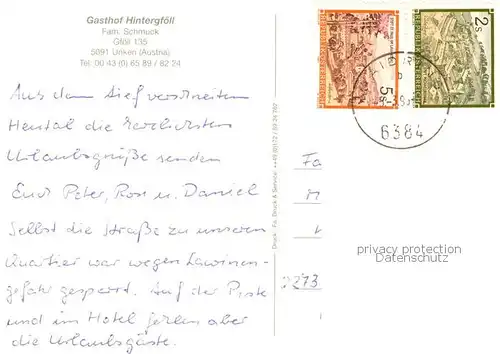 Gasthof Hintergföll
Fam. Schmuck
Gföll 135
5091 Unken (Austria)
Tel. 00 43 (0) 65 89 / 82 24
Aus dem tief verschneiten
Heutal die herzlichsten
Urlaubsgrüße senden
Euch Peter, Rosi u. Daniel
Selbst die Straße zu unserem
Quartier war wegen Lawinen-
gefahr gesperrt. Auf der Piste
und im Hotel fehlen aber
die Urlaubsgäste.
Druck: Fa. Druck & Service
5 S
2 S
6384
Fa
privacy protection
Datenschutz
2273